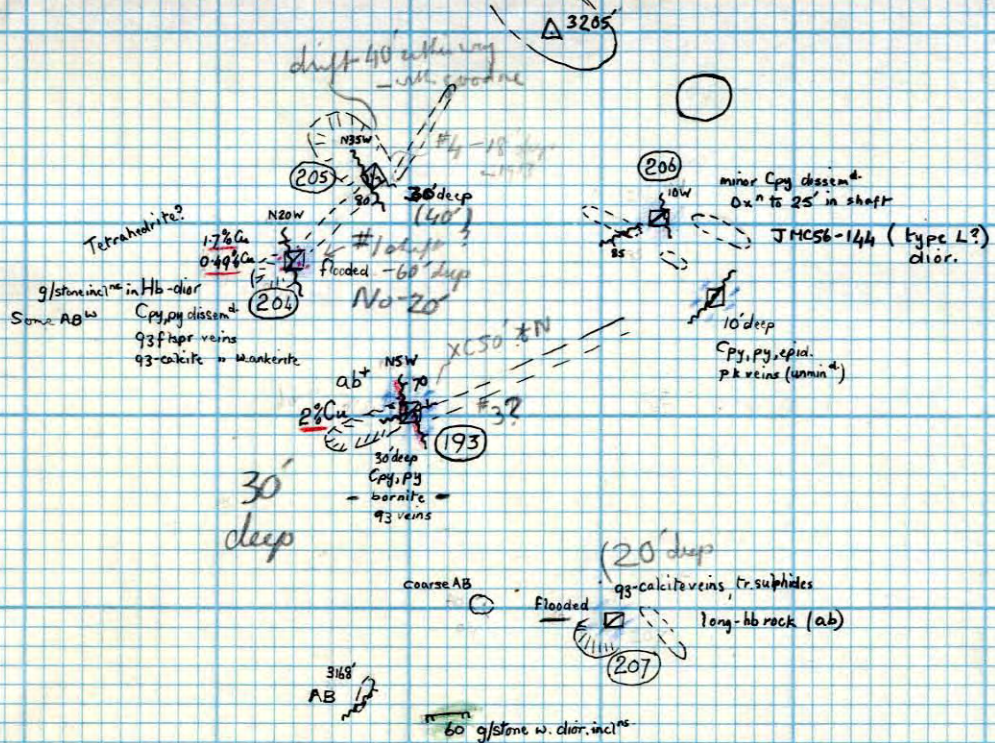 3205
drift 40' either way
N35W
#4 - 18' deep
205
80
30' deep
(40')
206
10W
85
minor Cpy dissem^d.
Ox^n to 25' in shaft
JMC56-144 (type L?)
dior.
Tetrahedrite?
1.7% Cu
0.49% Cu
N20W
#1 shaft ?
flooded - 60' deep
No - 20'
204
g/stone incl^ns in Hb-dior
Some AB^w
Cpy, py dissem^d.
q3 flspr veins
q3-calcite " w. ankerite
10' deep
Cpy, py, epid.
pk veins (unmin^d.)
XC50' N
N5W
70
ab+
2% Cu
#3?
193
30' deep
Cpy, py
- bornite -
q3 veins
30'
deep
(20' deep
q3-calcite veins, tr. sulphides
coarse AB
flooded
long-hb rock (ab)
207
3168'
AB
60 g/stone w. dior. incl^ns.